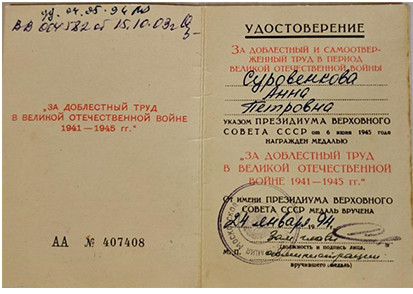 уд. 04.95-94
ВВ 004582 от 15.10.09г
„ЗА ДОБЛЕСТНЫЙ ТРУД
В ВЕЛИКОЙ ОТЕЧЕСТВЕННОЙ ВОЙНЕ
1941—1945 гг.“
АА № 407408
УДОСТОВЕРЕНИЕ
ЗА ДОБЛЕСТНЫЙ И САМООТВЕР-
ЖЕННЫЙ ТРУД В ПЕРИОД
ВЕЛИКОЙ ОТЕЧЕСТВЕННОЙ ВОЙНЫ
Суровенкова
Анна
Петровна
УКАЗОМ ПРЕЗИДИУМА ВЕРХОВНОГО
СОВЕТА СССР от 6 июня 1945 года
НАГРАЖДЕН МЕДАЛЬЮ
„ЗА ДОБЛЕСТНЫЙ ТРУД
В ВЕЛИКОЙ ОТЕЧЕСТВЕННОЙ
ВОЙНЕ 1941—1945 гг.“
От имени ПРЕЗИДИУМА ВЕРХОВНОГО
СОВЕТА СССР МЕДАЛЬ ВРУЧЕНА
24 января 1994
Зам. главы
(должность и подпись лица,
М. П. администрации
вручившего медаль)